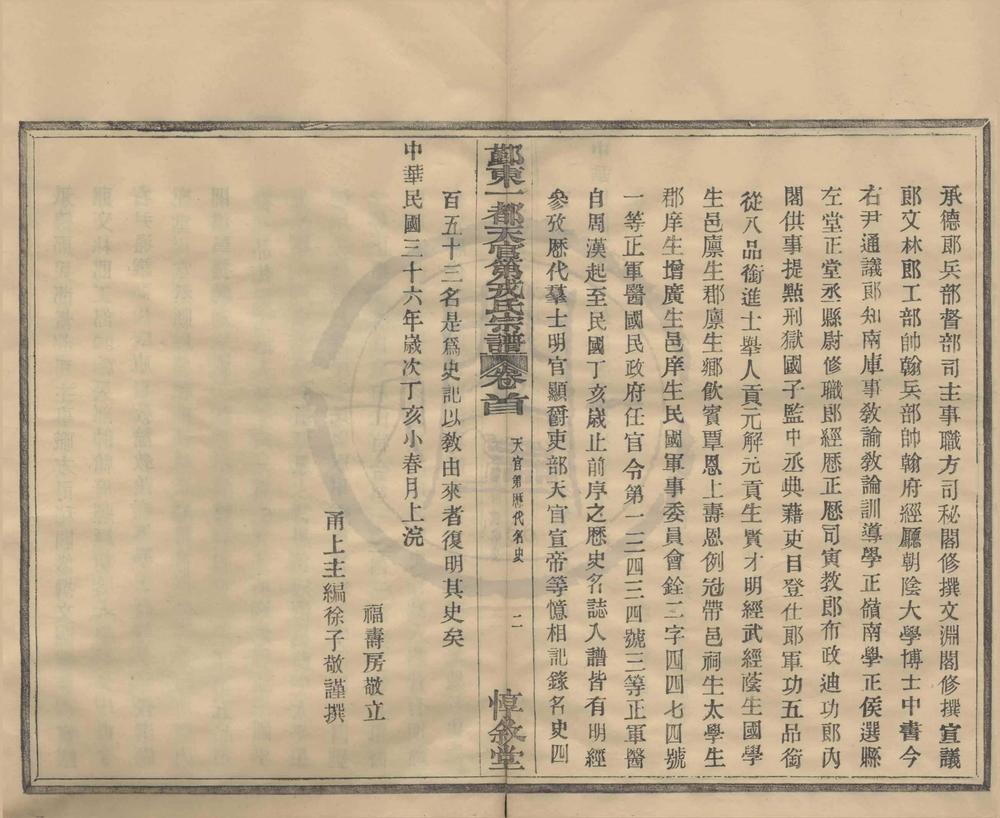 承德郎兵部督部司主事職方司秘閣修撰文淵閣修撰宣議
郎文林郎工部帥翰兵部帥翰府經廳朝陰大學博士中書今
右尹通議郎知南庫事教諭教論訓導學正嶺南學正侯選縣
左堂正堂丞縣尉修職郎經歷正歷司寅教郎布政迪功郎內
閣供事提點刑獄國子監中丞典藉吏目登仕郎軍功五品銜
從八品銜進士舉人貢元解元貢生賢才明經武經蔭生國學
生邑廩生郡廩生鄉飲賓覃恩上壽恩例冠帶邑祠生太學生
郡庠生增廣生邑庠生民國軍事委員會銓三字四四七四號
一等正軍醫國民政府任官令第一二四三四號三等正軍醫
自周漢起至民國丁亥歲止前序之歷史名誌入譜皆有明經
參攷歷代羣士明官顯爵吏部天官宣帝等憶相記錄名史四
鄞東一都天官第戎氏宗譜 卷首 天官第歷代名史 二 惇敘堂
百五十三名是為史記以敎由來者復明其史矣
中華民國三十六年歲次丁亥小春月上浣
福壽房敬立
甬上主編徐子敬謹撰